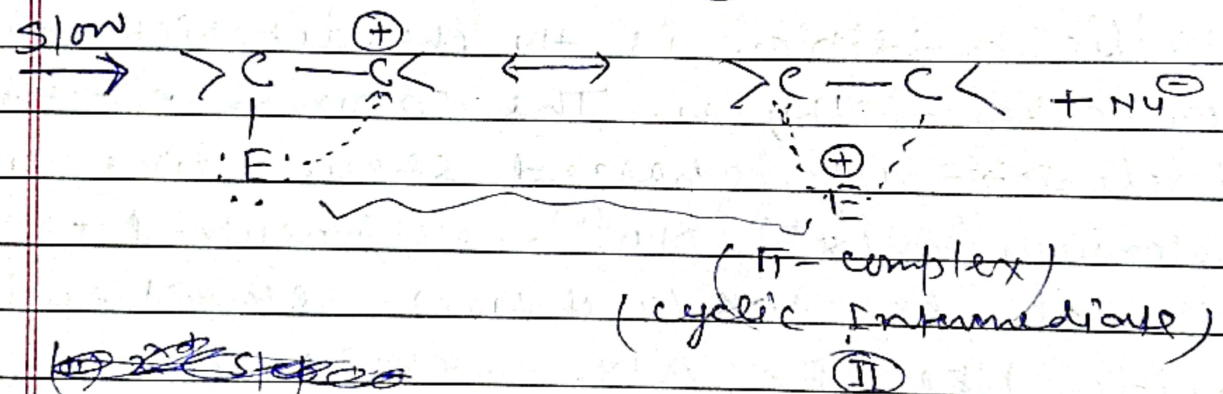 Slow
>C — C⊕< ⟷ >C — C< + Nu⊖
:E: ⊕
E
(π - complex)
(cyclic Intermediate)
II